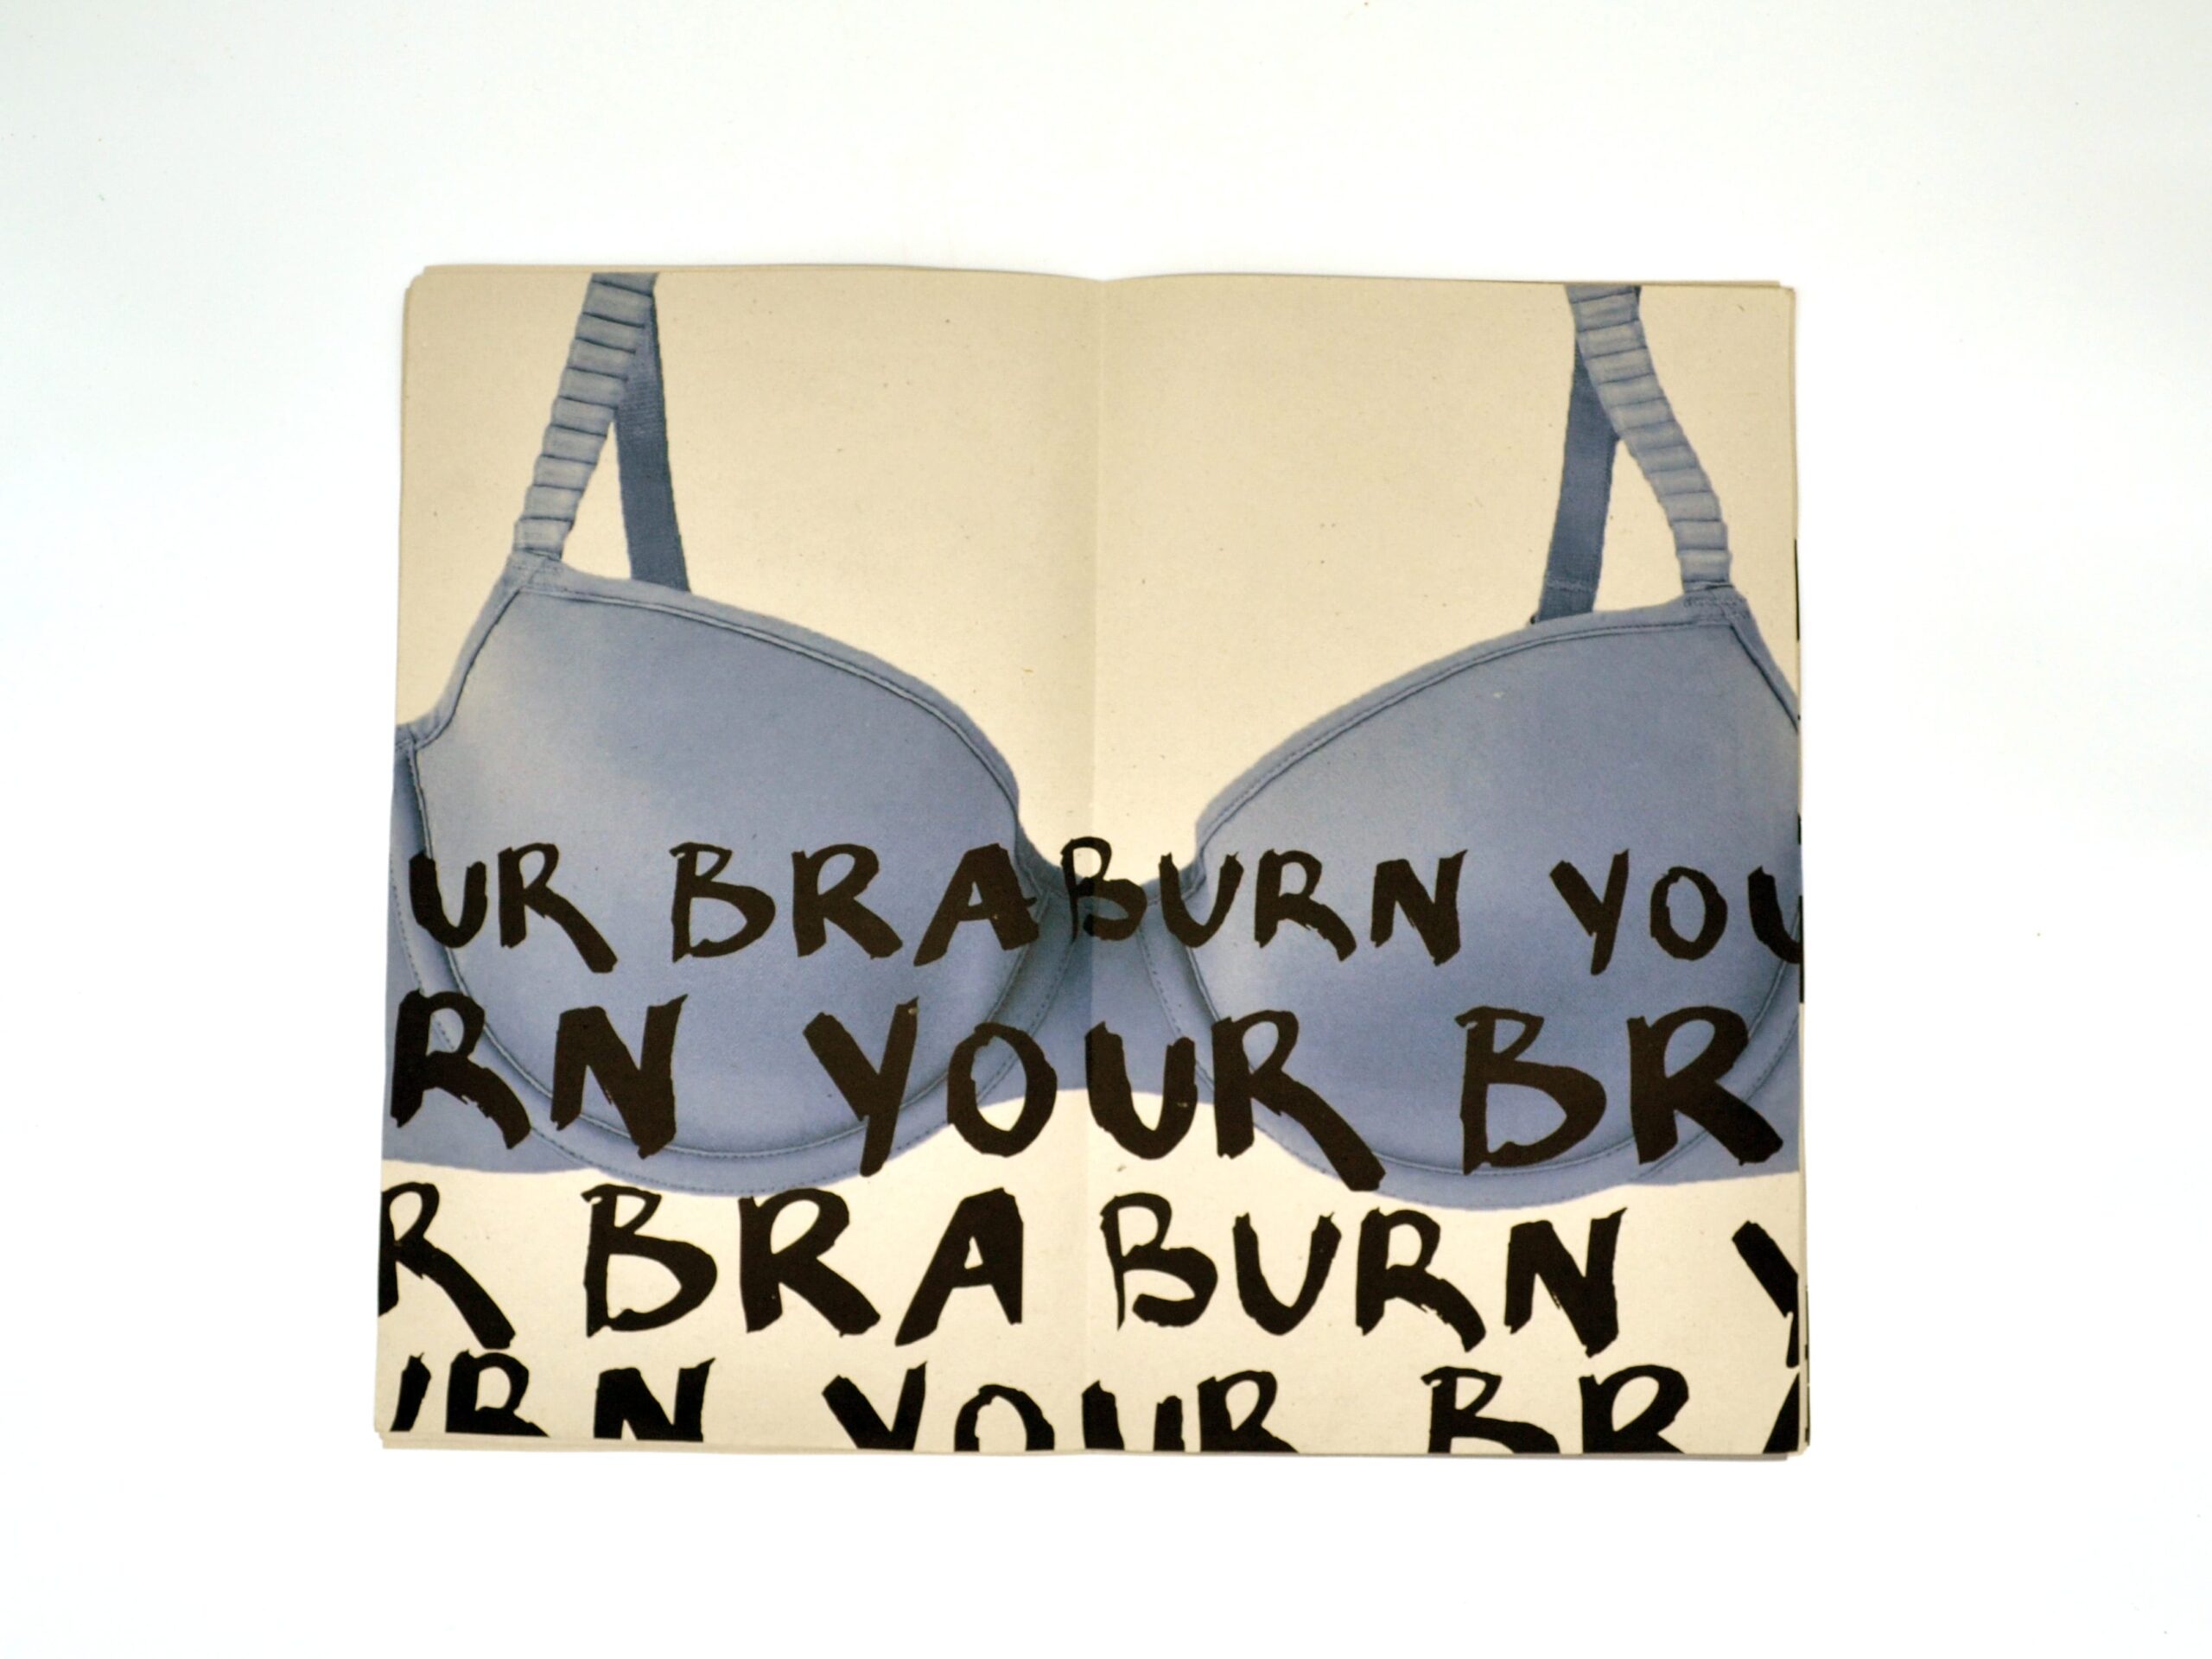 UR BRA BURN YOU
RN YOUR BR
R BRA BURN Y
URN YOUR BRA